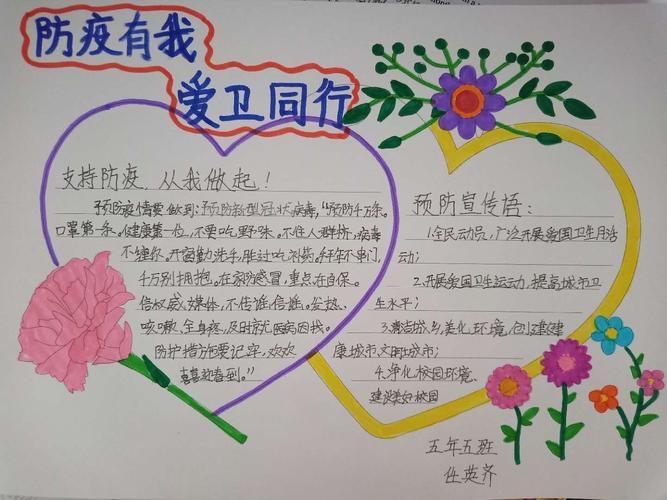 防疫有我
爱卫同行
支持防疫，从我做起！
预防疫情要做到：预防新型冠状病毒，“预防千万条。
口罩第一条。健康第一位，不要吃野味。不往人群挤，病毒
不缠你。开窗勤洗手，胜过吃补药。拜年不串门，
千万别拥抱。在家防感冒，重点在自保。
信权威媒体，不传谣信谣。发热、
咳嗽、全身疼，及时就医病因找。
防护措施要记牢，欢欢
喜喜迎春到。”
预防宣传语：
1.全民动员，广泛开展爱国卫生月活
动；
2.开展爱国卫生运动，提高城市卫
生水平；
3.清洁城乡，美化环境，创建健
康城市、文明城市；
4.净化校园环境、
建设美好校园
五年五班
任英齐